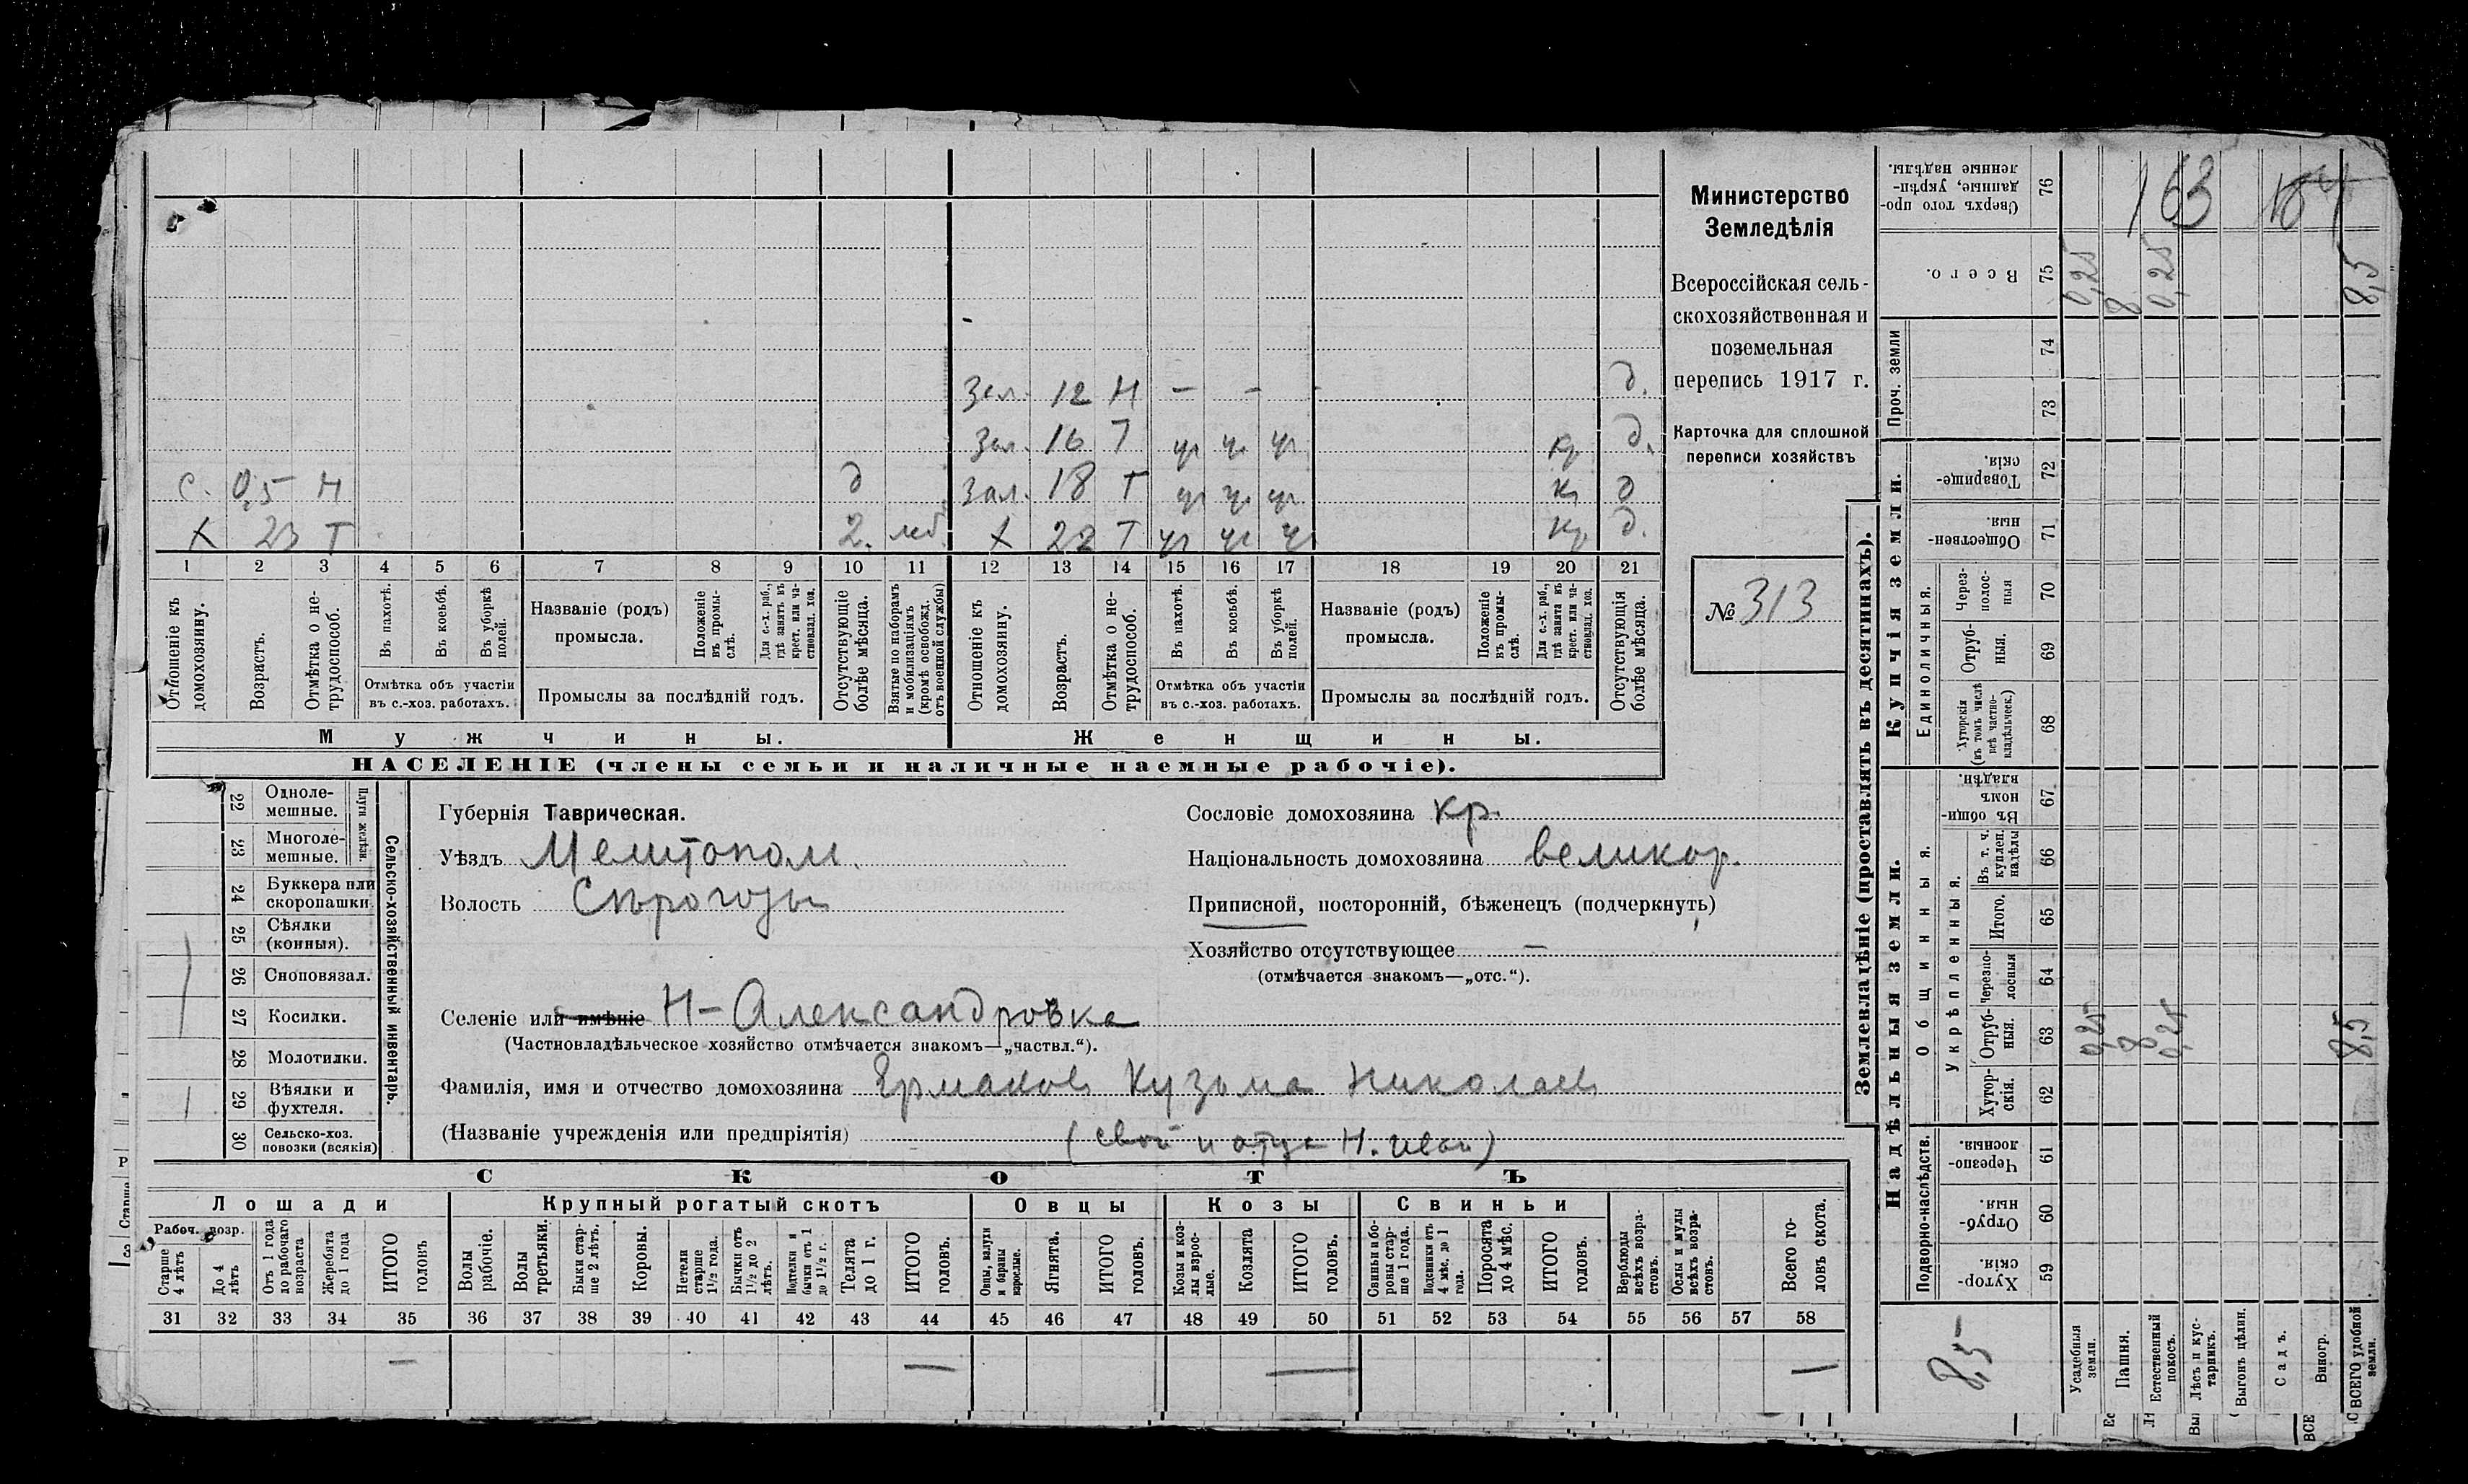 Министерство
Земледѣлія
Всероссійская сель-
скохозяйственная и
поземельная
перепись 1917 г.
Карточка для сплошной
переписи хозяйствъ
№ 313
Зол. 12 Н — — д.
Зол. 16 Т уч уч уч кр д.
с. 0,5 Н д Зол. 18 Т уч уч уч к д
Х 23 Т 2. Х 22 Т уч уч уч кр д.
1 2 3 4 5 6 7 8 9 10 11 12 13 14 15 16 17 18 19 20 21
Отношеніе къ домохозяину.
Возрастъ.
Отмѣтка о не-трудоспособ.
Въ пахотѣ.
Въ косьбѣ.
Въ уборкѣ полей.
Отмѣтка объ участіи
въ с.-хоз. работахъ.
Названіе (родъ)
промысла.
Положеніе въ промы-слѣ.
Для с.-х. раб., гдѣ занятъ въ крест. или ча-стновлад. хоз.
Промыслы за послѣдній годъ.
Отсутствующіе болѣе мѣсяца.
Взятые по наборамъ и мобилизаціямъ (кромѣ освобожд. отъ военной службы)
Отношеніе къ домохозяину.
Возрастъ.
Отмѣтка о не-трудоспособ.
Въ пахотѣ.
Въ косьбѣ.
Въ уборкѣ полей.
Отмѣтка объ участіи
въ с.-хоз. работахъ.
Названіе (родъ)
промысла.
Положеніе въ промы-слѣ.
Для с.-х. раб., гдѣ занята въ крест. или ча-стновлад. хоз.
Промыслы за послѣдній годъ.
Отсутствующія болѣе мѣсяца.
Мужчины.
Женщины.
НАСЕЛЕНІЕ (члены семьи и наличные наемные рабочіе).
Сельско-хозяйственный инвентарь.
Плуги желѣзн.
22 Одноле-мешные.
23 Многоле-мешные.
24 Буккера или скоропашки
25 Сѣялки (конныя).
26 Сноповязал.
27 Косилки.
28 Молотилки.
29 Вѣялки и фухтеля.
30 Сельско-хоз. повозки (всякія)
Губернія Таврическая.
Уѣздъ Мелитопол.
Волость Сѣрогозы
Селеніе или имѣніе Н-Александровка
(Частновладѣльческое хозяйство отмѣчается знакомъ—„частвл.“).
Фамилія, имя и отчество домохозяина Ермаковъ Кузьма Николаевъ
(Названіе учрежденія или предпріятія) (свой и отца Н. Иван)
Сословіе домохозяина кр.
Національность домохозяина великор.
Приписной, посторонній, бѣженецъ (подчеркнуть)
Хозяйство отсутствующее —
(отмѣчается знакомъ—„отс.“).
СКОТЪ
Лошади
Крупный рогатый скотъ
Овцы
Козы
Свиньи
Рабоч. возр.
Старше 4 лѣтъ
До 4 лѣтъ
Отъ 1 года до рабочаго возраста
Жеребята до 1 года
ИТОГО головъ
Волы рабочіе.
Волы третьяки.
Быки стар-ше 2 лѣтъ.
Коровы.
Нетели старше 1½ года.
Бычки отъ 1½ до 2 лѣтъ.
Подтелки и бычки отъ 1 до 1½ г.
Телята до 1 г.
ИТОГО головъ.
Овцы, валухи и бараны взрослые.
Ягнята.
ИТОГО головъ.
Козы и коз-лы взрос-лые.
Козлята
ИТОГО головъ.
Свиньи и бо-ровы стар-ше 1 года.
Подсвинки отъ 4 мѣс. до 1 года.
Поросята до 4 мѣс.
ИТОГО головъ.
Верблюды всѣхъ возра-стовъ.
Ослы и мулы всѣхъ возра-стовъ.
Всего го-ловъ скота.
31 32 33 34 35 36 37 38 39 40 41 42 43 44 45 46 47 48 49 50 51 52 53 54 55 56 57 58
— — — —
Землевладѣніе (проставлять въ десятинахъ).
Надѣльныя земли.
Купчія земли.
Проч. земли
Подворно-наслѣдств.
Общинныя.
Укрѣпленныя.
Единоличныя.
Сверхъ того про-данные, укрѣп-ленные надѣлы. 76
163
Всего. 75 0,25 8 0,25 8,5
74
73
Товарище-скія. 72
Обществен-ныя. 71
Через-полос-ныя 70
Отруб-ныя. 69
Хуторскія (въ томъ числѣ всѣ частно-владѣльческ.) 68
Въ общи-номъ владѣн. 67
Въ т. ч. куплен. надѣлы 66
Итого. 65
Черезпо-лосныя 64
Отруб-ныя. 63 0,25 8 0,25 8,5
Хутор-скія. 62
Черезпо-лосныя. 61
Отруб-ныя. 60
Хутор-скія. 59
8,5
Усадебныя земли.
Пашня.
Естественный покосъ.
Лѣсъ и кус-тарникъ.
Выгонъ цѣлин.
Садъ.
Виногр.
ВСЕГО удобной земли.